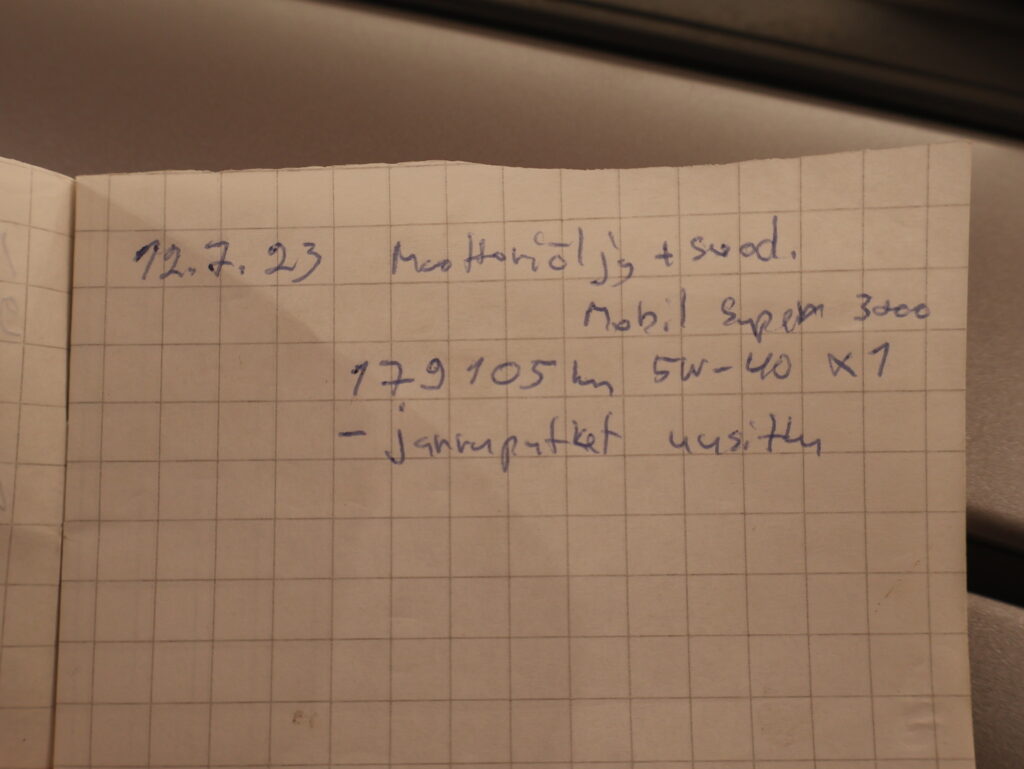 12.7.23 Moottoriöljy + suod.
Mobil Super 3000
179105 km 5W-40 X1
- jarruputket uusittu